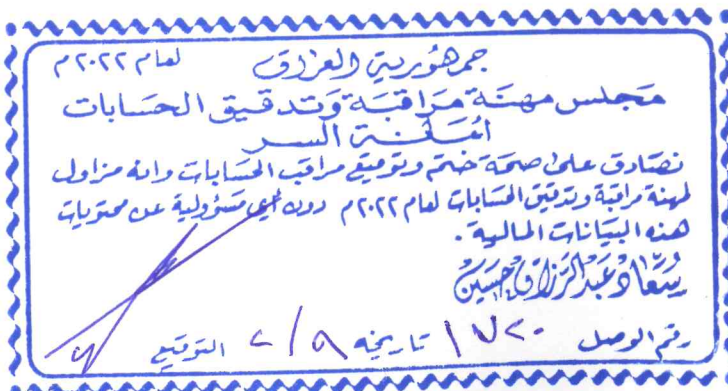 جمهورية العراق لعام ٢٠٢٢ م
مجلس مهنة مراقبة وتدقيق الحسابات
أمانة السر
نصادق على صحة ختم وتوقيع مراقب الحسابات وانه مزاول
لمهنة مراقبة وتدقيق الحسابات لعام ٢٠٢٢ م دون أي مسؤولية عن محتويات
هذه البيانات المالية .
سعاد عبد الرزاق حسين
رقم الوصل ١٧٢٠ تاريخه ٢/٩ التوقيع